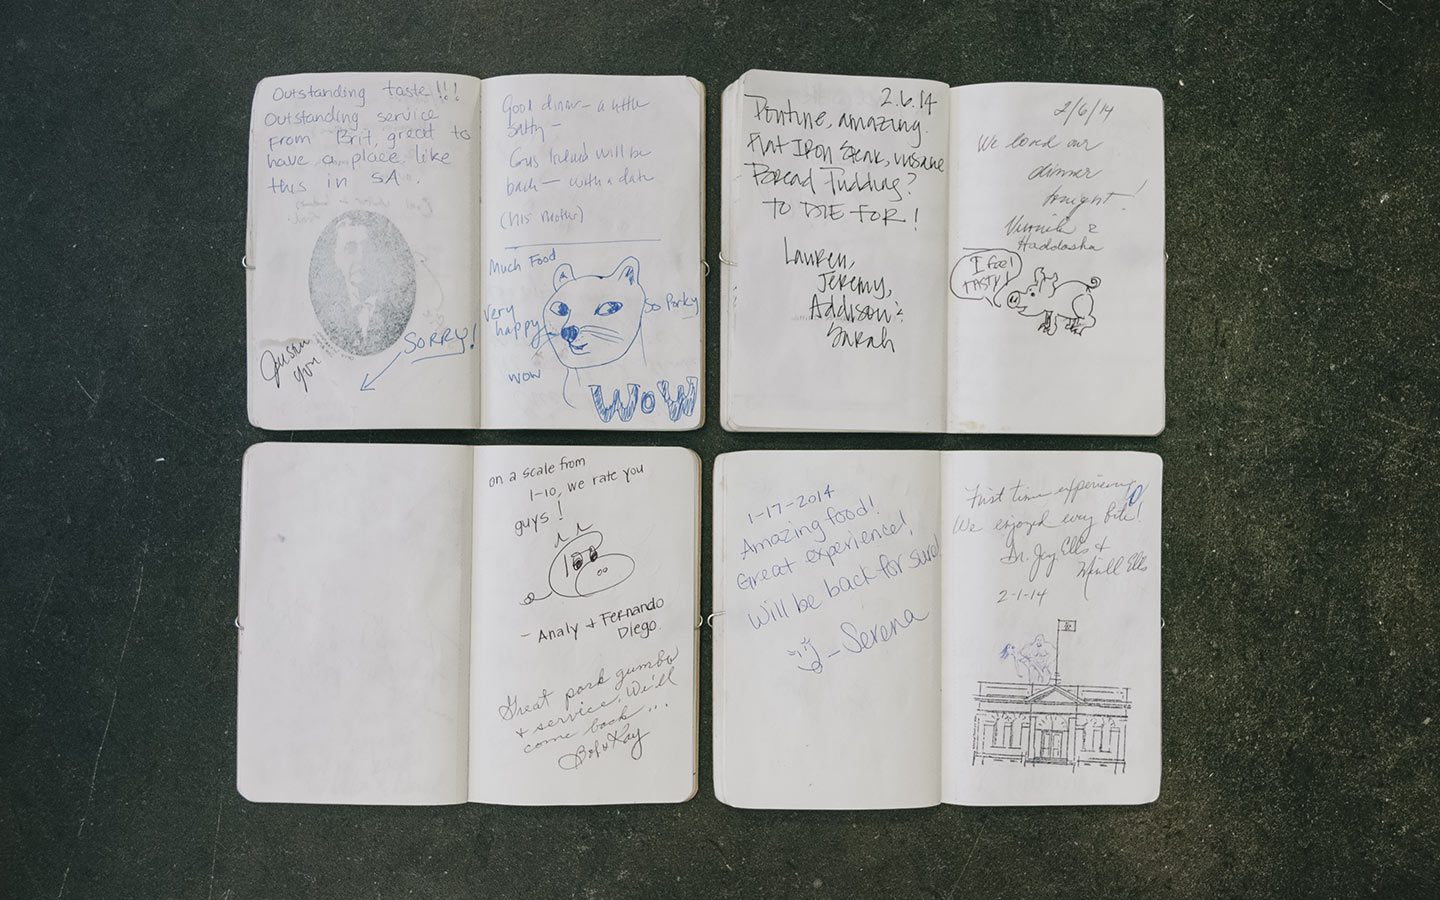 Outstanding taste!!!
Outstanding service
From Brit, great to
have a place like
this in SA.
SORRY!
Good dinner – a little
salty –
Gus will be
back – with a date
(his mother)
Much Food
very
happy
so Porky
wow
WoW
2.6.14
amazing.
Flat IRON Steak, insane
Bread Pudding?
TO DIE FOR!
Lauren,
Jeremy,
Addison &
Sarah
2/6/14
We loved our
dinner
tonight!
&
Haddasha
I feel
TASTY!
on a scale from
1-10, we rate you
guys!
- Analy + Fernando
Diego.
Great pork gumbo
+ service. We'll
come back ...
Bob & Kay
1-17-2014
Amazing food!
Great experience!
Will be back for sure!
- Serena
First time experience
We enjoyed every bite!
Dr. Ells &
Ells
2-1-14